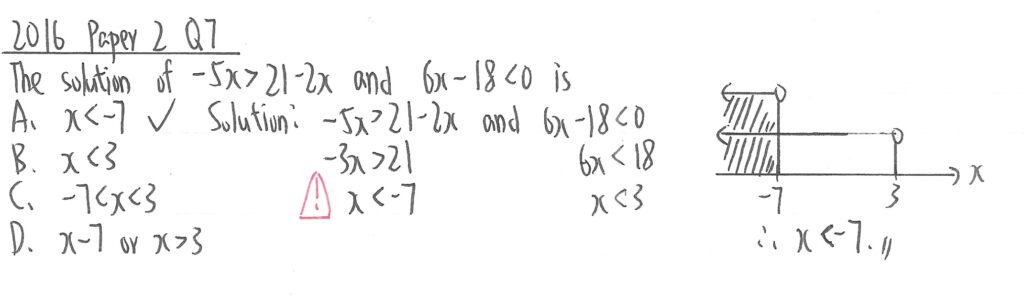 2016 Paper 2 Q7
The solution of -5x>21-2x and 6x-18<0 is
A. x<-7 ✓ Solution: -5x>21-2x and 6x-18<0
B. x<3 -3x>21 6x<18
C. -7<x<3 ! x<-7 x<3
D. x-7 or x>3
-7 3 x
∴ x<-7.〃